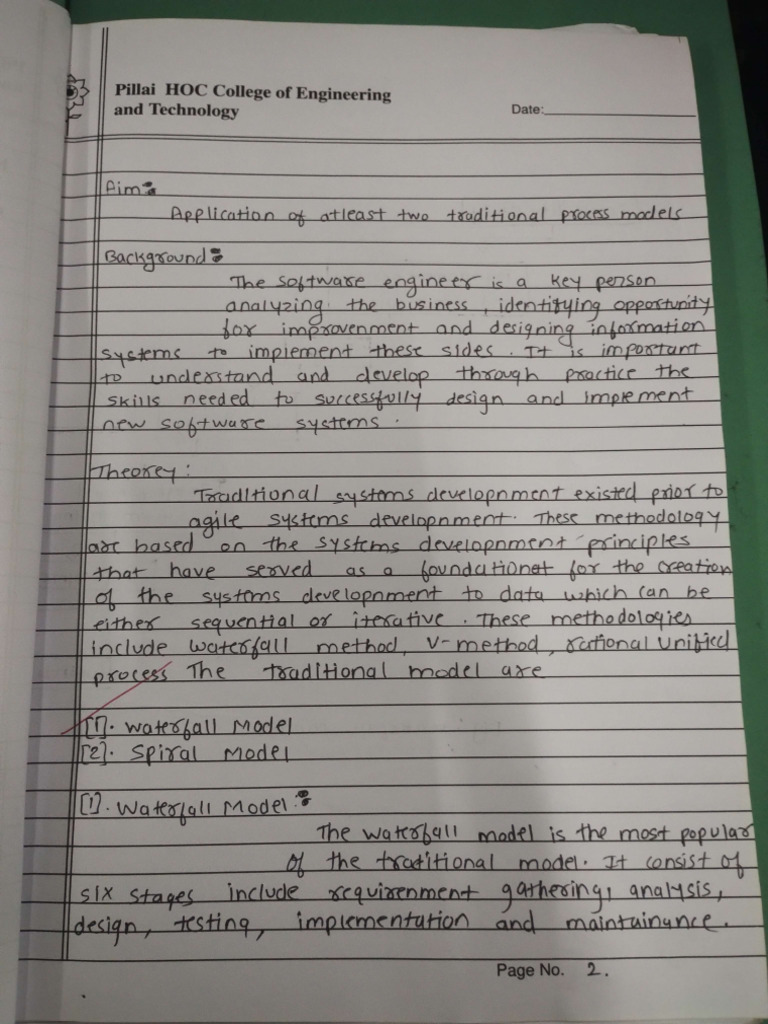 Pillai HOC College of Engineering
and Technology
Date:
Aim:
Application of atleast two traditional process models
Background:
The software engineer is a key person
analyzing the business, identifying opportunity
for improvenment and designing information
systems to implement these sides. It is important
to understand and develop through practice the
skills needed to successfully design and implement
new software systems.
Theorey:
Traditional systems developnment existed prior to
agile systems developnment. These methodology
are based on the systems developnment principles
that have served as a foundational for the creation
of the systems developnment to data which can be
either sequential or iterative. These methodologies
include waterfall method, V-method, rational unified
process The traditional model are
[1]. Waterfall Model
[2]. Spiral Model
[1]. Waterfall Model:
The waterfall model is the most popular
of the traditional model. It consist of
six stages include requirenment gathering, analysis,
design, testing, implementation and maintainance.
Page No. 2.